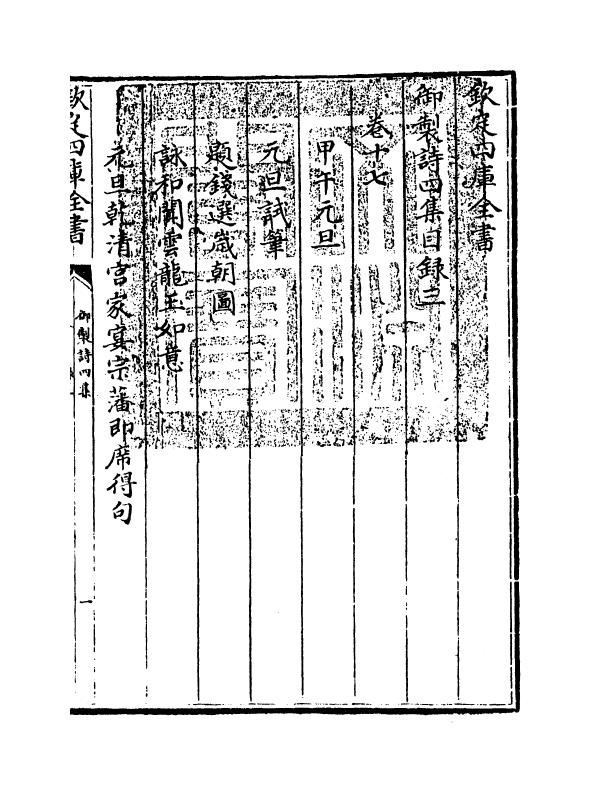 欽定四庫全書
御製詩四集目録三
卷十七
甲午元旦
元旦試筆
題錢選歲朝圖
詠和闐雲龍玉如意
元旦乾清宮家宴宗藩即席得句
欽定四庫全書
御製詩四集
一